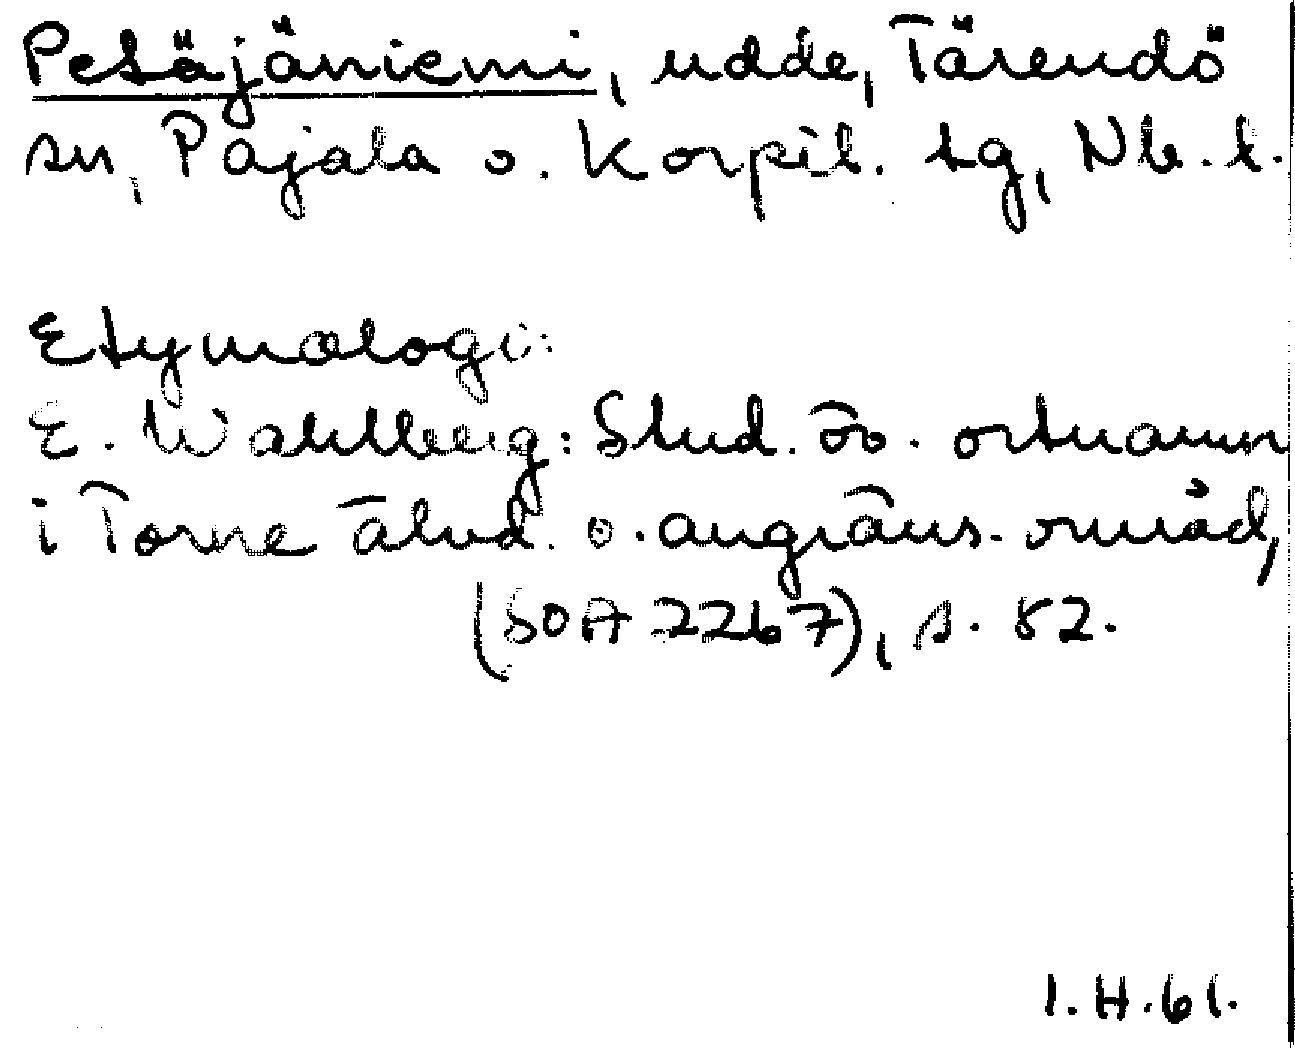 Petäjäniemi, udde, Tärendö
sn, Pajala o. Korpil. tg, Nb. l.
Etymologi:
E. Wahlberg: Stud. öv. ortnamn
i Torne älvd. o. angräns. områd,
(SOA 2267), s. 52.
I.H.61.